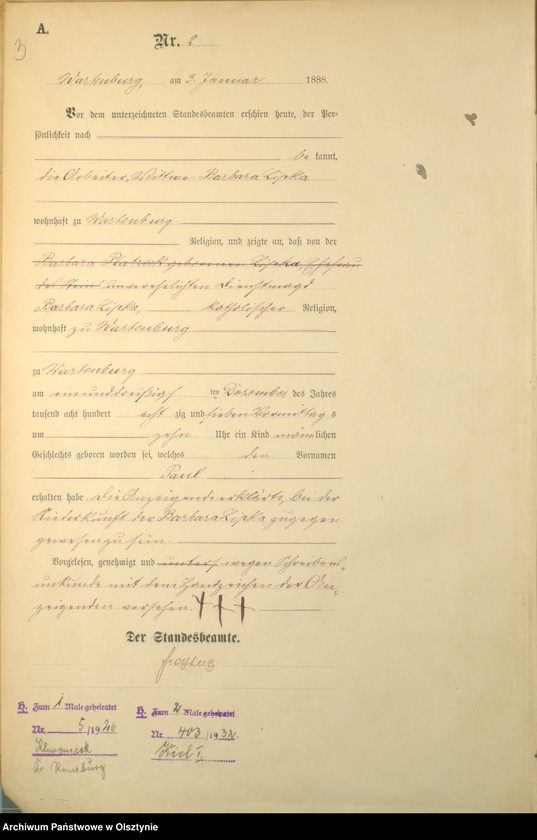 A.
3
Nr. 2
Wartenburg, am 3. Januar 1888.
Vor dem unterzeichneten Standesbeamten erschien heute, der Per-
sönlichkeit nach
be kannt,
die Arbeiter-Wittwe Barbara Lipka
wohnhaft zu Wartenburg
Religion, und zeigte an, daß von der
Barbara geborenen Lipka, Ehefrau
des unverehelichten Dienstmagd
Barbara Lipka, katholischer Religion,
wohnhaft zu Wartenburg
zu Wartenburg
am einunddreißigs ten Dezember des Jahres
tausend acht hundert acht zig und sieben Vormittag s
um zehn Uhr ein Kind männlichen
Geschlechts geboren worden sei, welches den Vornamen
Paul
erhalten habe. Die Anzeigende erklärte, bei der
Niederkunft der Barbara Lipka zugegen
gewesen zu sein.
Vorgelesen, genehmigt und unters wegen Schreibens-
unkunde mit dem Handzeichen der An-
zeigenden versehen. +++
Der Standesbeamte.
H. Zum 1 Male geheiratet
Nr. 5/1926
H. Zum 2 Male geheiratet
Nr. 403/1932
Kiel I.
Archiwum Państwowe w Olsztynie